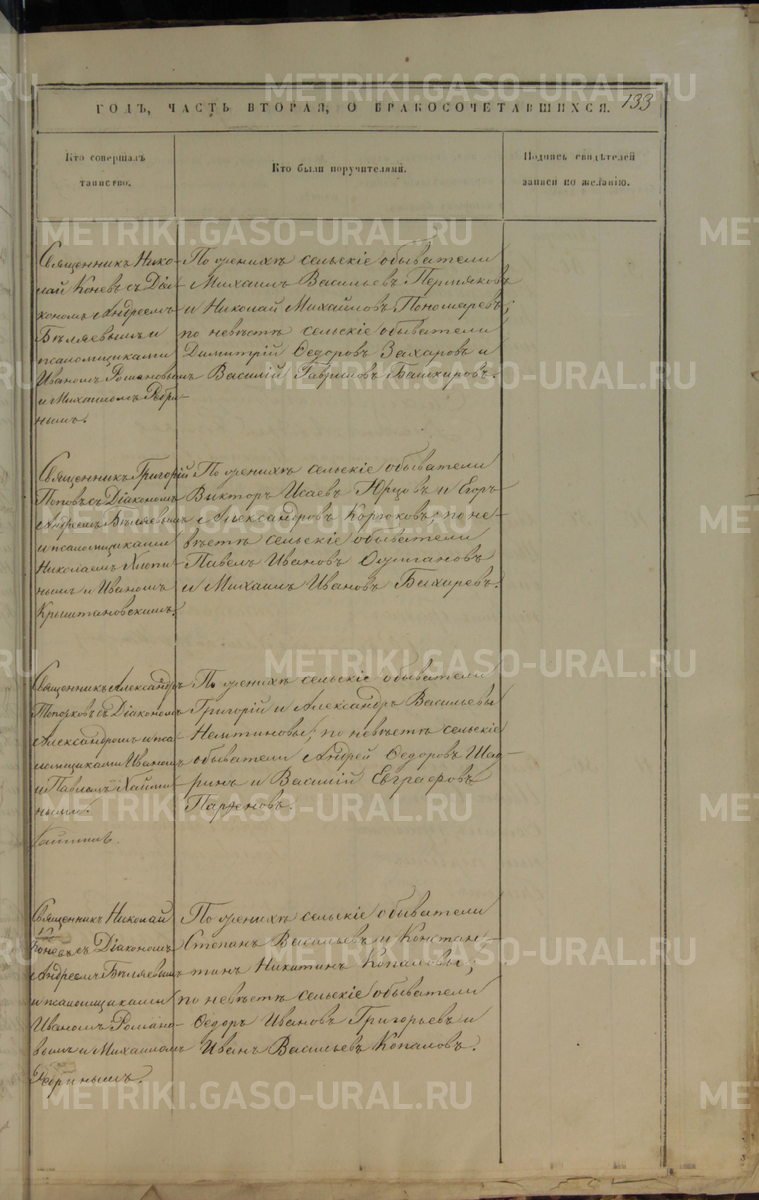 133
ГОДЪ, ЧАСТЬ ВТОРАЯ, О БРАКОСОЧЕТАВШИХСЯ.
Кто совершалъ
таинство.
Кто были поручителями.
Подпись свидѣтелей
записи по желанію.
Священникъ Нико-
лай Коневъ съ Діа-
кономъ Андреемъ
Бѣляевымъ и
псаломщиками
Иваномъ Романовымъ
и Михаиломъ Ребри-
нымъ.
По женихѣ сельскіе обыватели
Михаилъ Васильевъ Пермяковъ
и Николай Михайловъ Пономаревъ;
по невѣстѣ сельскіе обыватели
Димитрій Ѳедоровъ Захаровъ и
Василій Гавриловъ Башкировъ.
Священникъ Григорій
Поповъ съ Діакономъ
Андреемъ Бѣляевымъ
и псаломщиками
Николаемъ
и Иваномъ
Крыштановскимъ.
По женихѣ сельскіе обыватели
Викторъ Исаевъ и Егоръ
Александровъ Коротковъ; по не-
вѣстѣ сельскіе обыватели
Павелъ Ивановъ
и Михаилъ Ивановъ Бахиревъ.
Священникъ Александръ
Топорковъ съ Діакономъ
Александромъ и пса-
ломщиками Иваномъ
и Павломъ
нымъ.
По женихѣ сельскіе обыватели
Григорій и Александръ Васильевы
по невѣстѣ сельскіе
обыватели Андрей Ѳедоровъ Шад-
ринъ и Василій Евграфовъ
Парѳеновъ.
Священникъ Николай
Коневъ съ Діакономъ
Андреемъ Бѣляевымъ
и псаломщиками
Иваномъ Романо-
вымъ и Михаиломъ
Ребринымъ.
По женихѣ сельскіе обыватели
Степанъ Васильевъ и Констан-
тинъ Никитинъ Копаловы;
по невѣстѣ сельскіе обыватели
Ѳедоръ Ивановъ Григорьевъ и
Иванъ Васильевъ Копаловъ.
METRIKI.GASO-URAL.RU